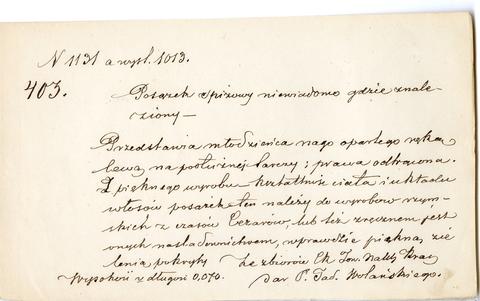 N 1131 a wyst. 1013.
403.
Posążek spiżowy niewiadomo gdzie znale-
ziony —
Przedstawia młodzieńca nago opartego ręką
lewą na podłużnej tarczy; prawa odtrącona.
Z pięknego wyrobu kształtnie ciała i układu
włosów posążek ten należy do wyrobów rzym-
skich z czasów Cezarów, lub też zręcznem jest
onych naśladownictwem, wprawdzie piękną zie
lenią pokryty Ze zbiorów Ck Tow. Nauk Krak
Wysokość z długości 0,070. dar P. Tad. Wolańskiego.